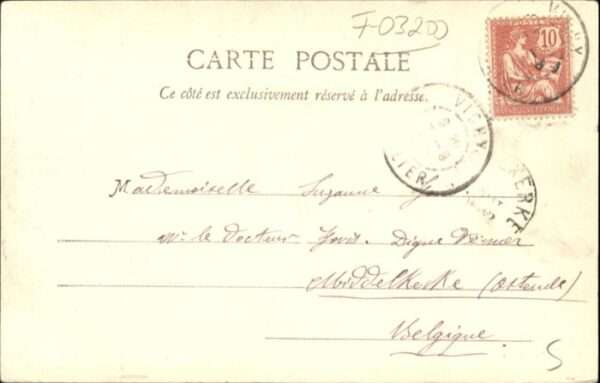 F03200
CARTE POSTALE
Ce côté est exclusivement réservé à l'adresse.
10
POSTES
VICHY
VICHY
ALLIER
KERKE
Mademoiselle Suzanne
le Docteur Digue
Middelkerke (Ostende)
Belgique
S